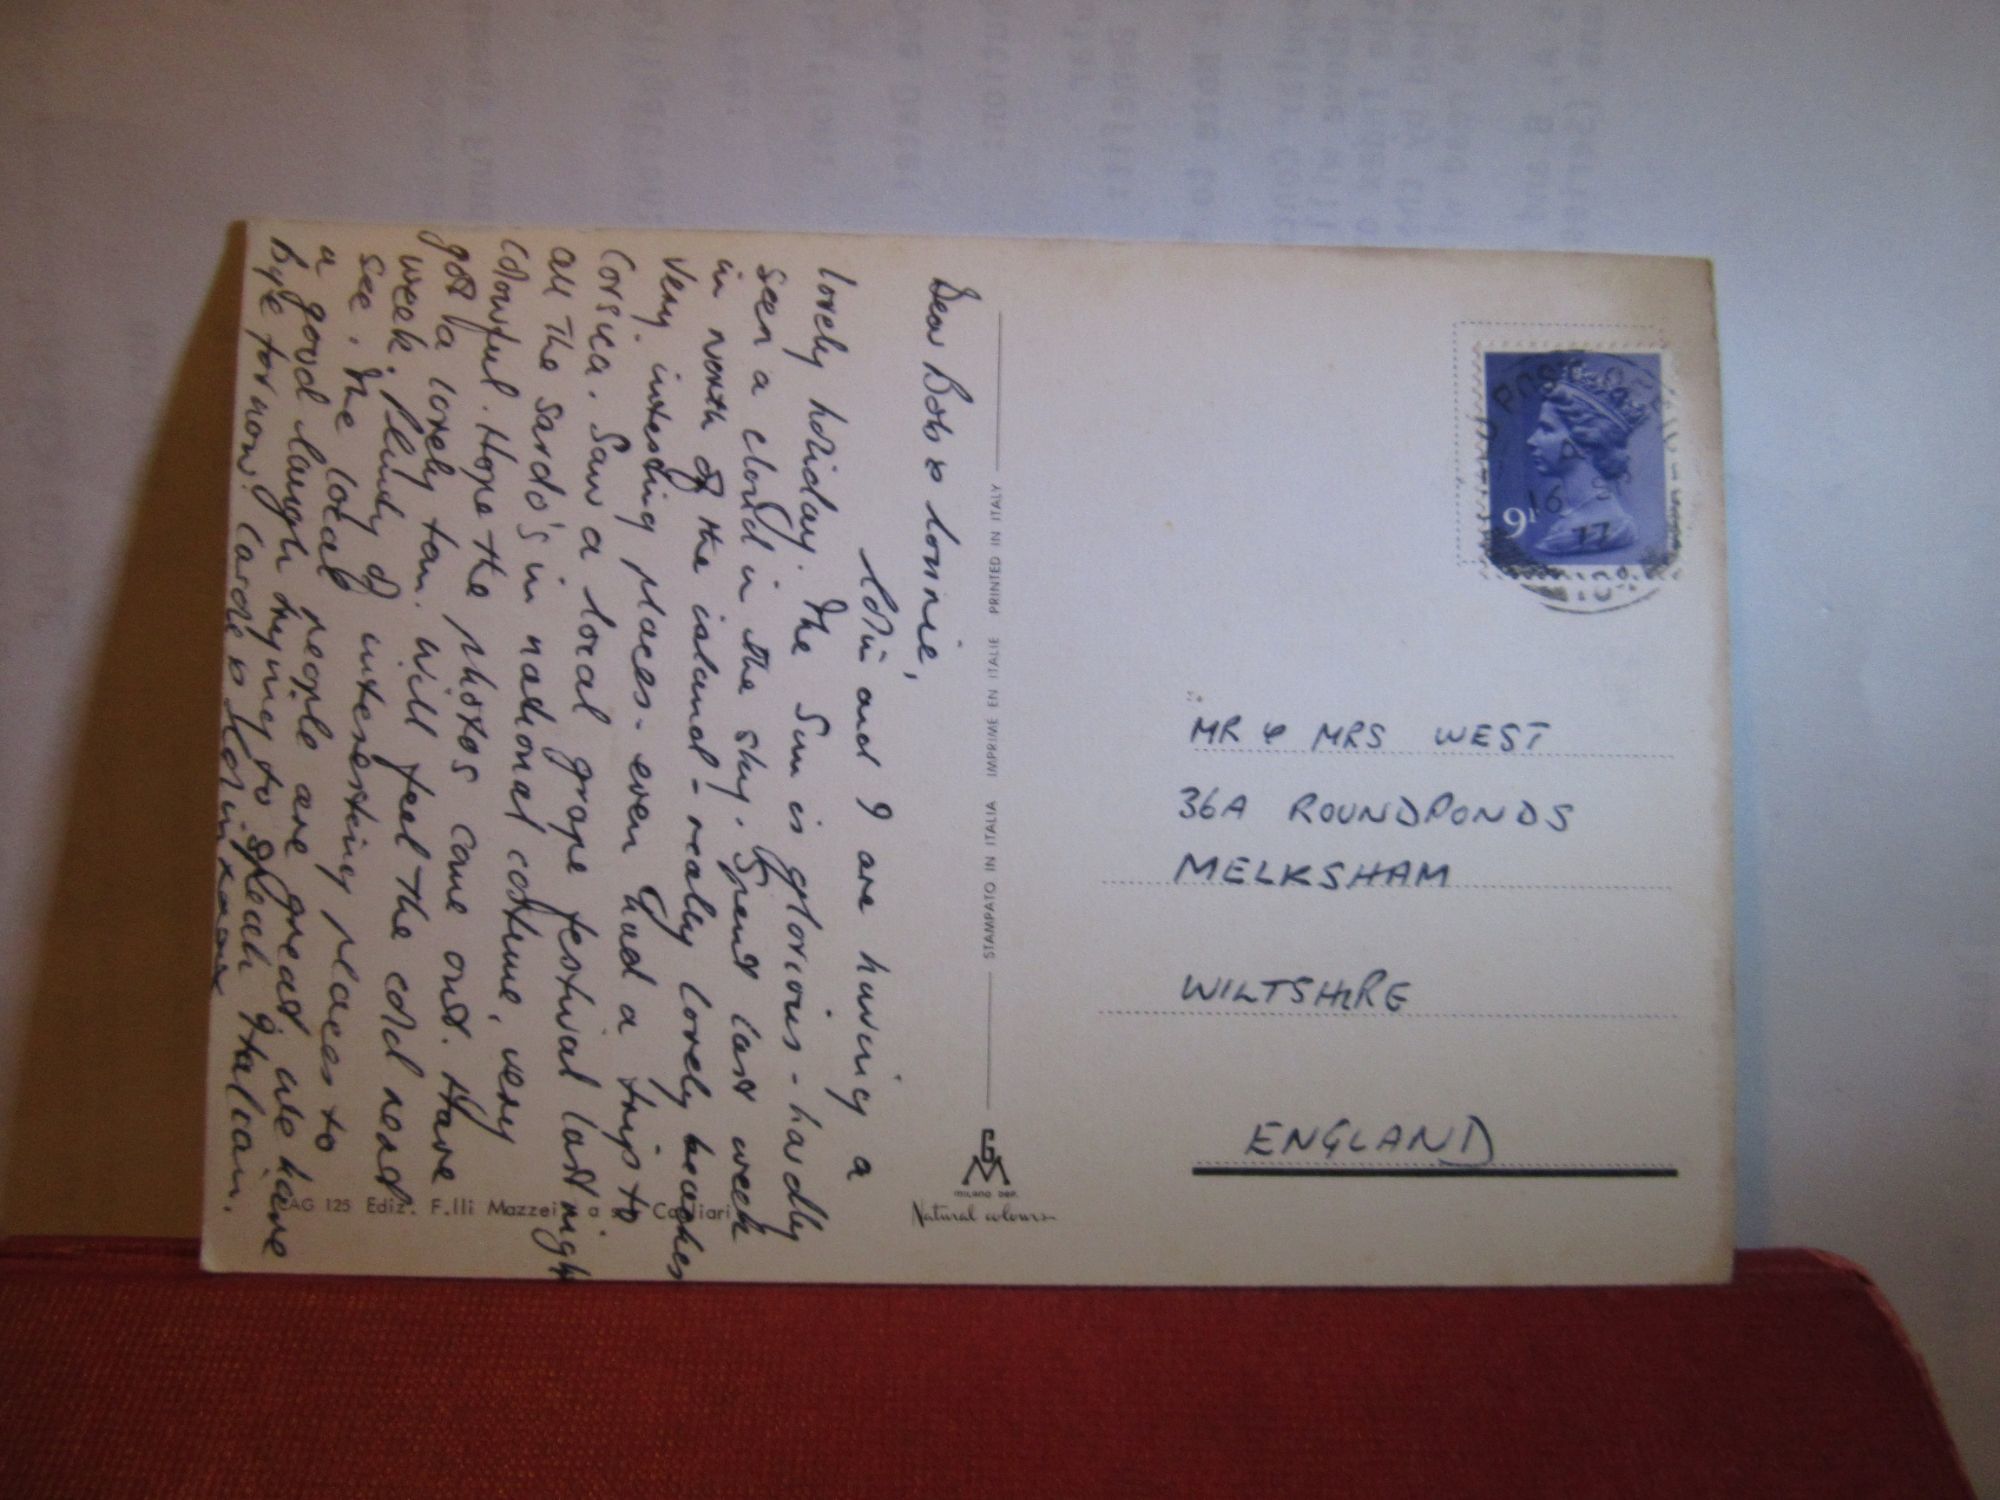 Dear Bob & Lonnie,
Colin and I are having a
lovely holiday. The Sun is glorious - hardly
seen a cloud in the sky. Spent last week
in north of the island - really lovely beaches
very interesting places - even had a trip to
Corsica. Saw a local grape festival last night
all the Sardo's in national costume, very
colourful. Hope the photos come out. Have
got a lovely tan. Will feel the cold next
week. Plenty of interesting places to
see. The local people are great, we have
a good laugh trying to speak Italian.
Bye for now. Carole & Colin xxxxx
CAG 125 Ediz. F.lli Mazzei Cagliari
STAMPATO IN ITALIA IMPRIME EN ITALIE PRINTED IN ITALY
GM
MILANO DEP.
Natural colours
POST
16
77
9P
MR & MRS WEST
36A ROUNDPONDS
MELKSHAM
WILTSHIRE
ENGLAND